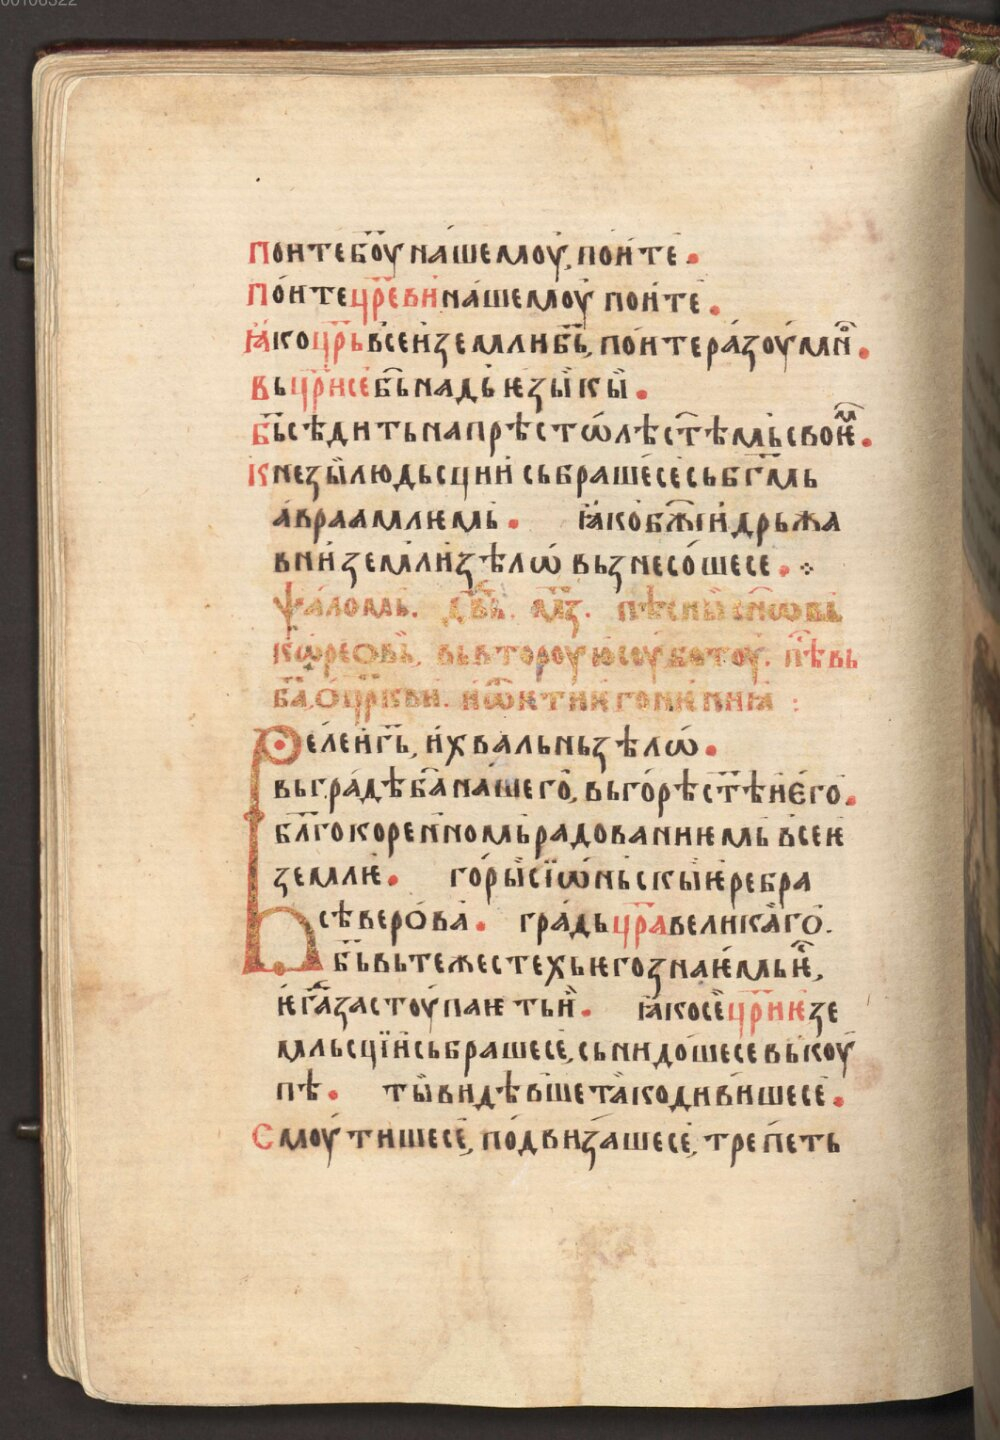 00108322
Поите б҃оу на́шемоу, пои́те •
По́ите цр҃еви на́шемоу пои́те •
Ꙗ҆ко цр҃ь всеи земли б҃ь, по́ите ра́зоу́мн҄ •
Вьцр҃и се б҃ь надь ѥзы̏кы̏ •
Б҃ь сѣдить на прѣстѡ́лѣ ст҃ѣмь своѥ҄ⷨ •
Кнези̏ людьсции̏ сьбраше́се сь б҃гѡмь
а́враамлѥмь • ꙗ҆ко бж҃ии̏ дрьжа
вни̏ земли̏ зѣлѡ́ вьзнесо́шесе •
Ѱа́ломь. дв҃дь. м҃з. пѣсны̏ сн҃ѡвь
кѡ́реѡвь, вьвтороую соуботоу. п̑ѣвь
б҃а, ѡ цр҃кви. и ѿ ѥтиѥ гонѥниꙗ :
Веле́и г҃ь, и҆ хвальнь зѣлѡ́ •
вь гра́дѣ б҃а на́шего̏, вь го́рѣ ст҃ѣи е҆го •
бл҃гокорен̏номь радованиѥмь всеѥ
землѥ • го́ры̏ сїѡ́ньскыѥ ребра
сѣверо́ва • гра́дь цр҃а велика҆го̏.
б҃ь вь тежестехь ѥго знаѥ́мь ѥ҄,
ѥг҃а застоу́паѥть и̏ • ꙗ҆ко се̏ цр҃иѥ зе
мльсцїи̏ сьбрашесе, сьнидо́шесе вькоу
пѣ • ты̏ ви́дѣвше та́ко диви́шесе •
Смоу́тишесе, по́двиза́шесе, треп̏еть